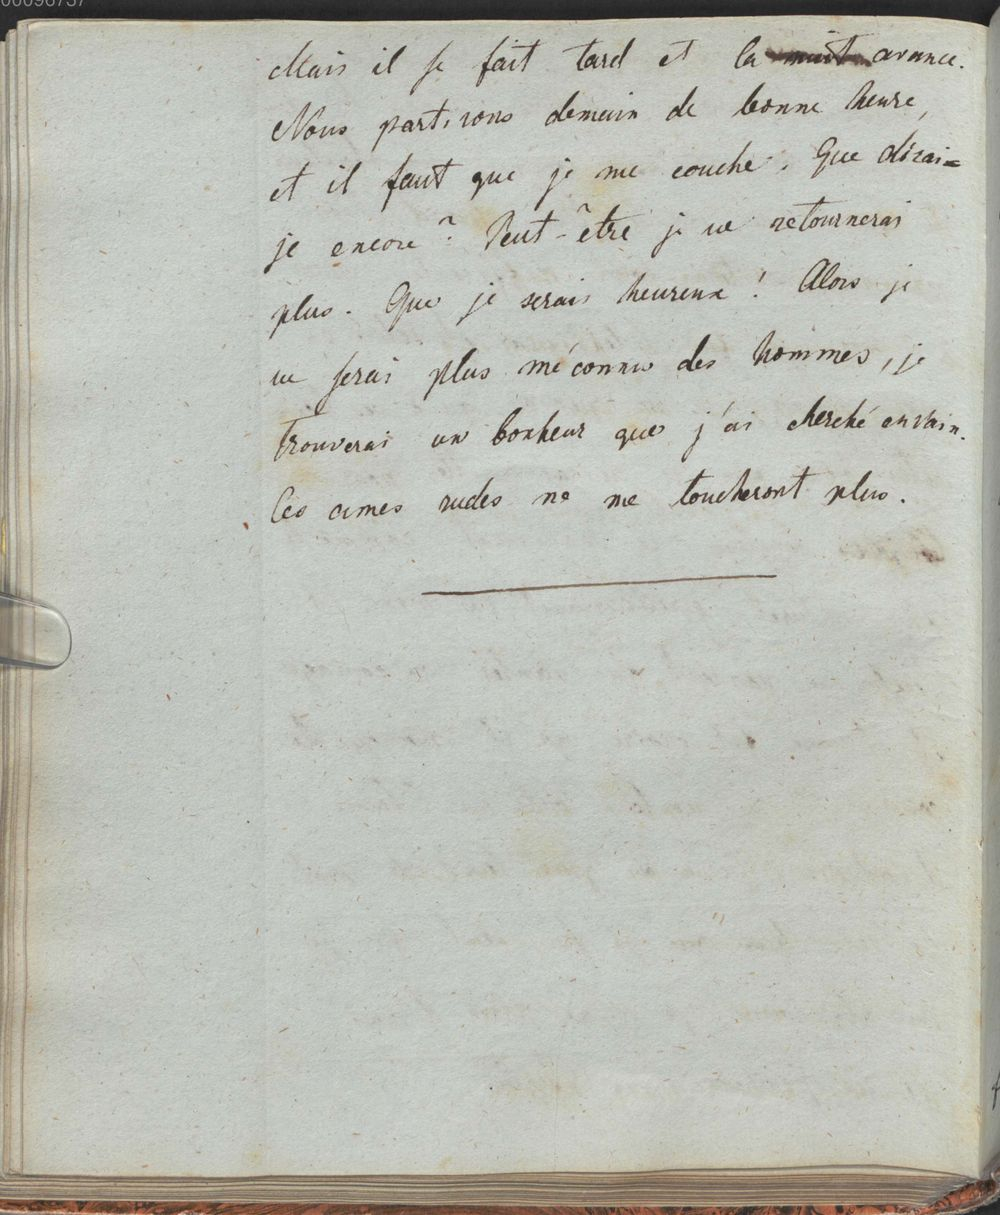 00096737
Mais il se fait tard et la nuit avance.
Nous partirons demain de bonne heure,
et il faut que je me couche. Que dirai=
je encore? Peut-être je ne retournerai
plus. Que je serais heureux! Alors je
ne serai plus méconnu des hommes, je
trouverai un bonheur que j'ai cherché en vain.
Ces ames rudes ne me toucheront plus.